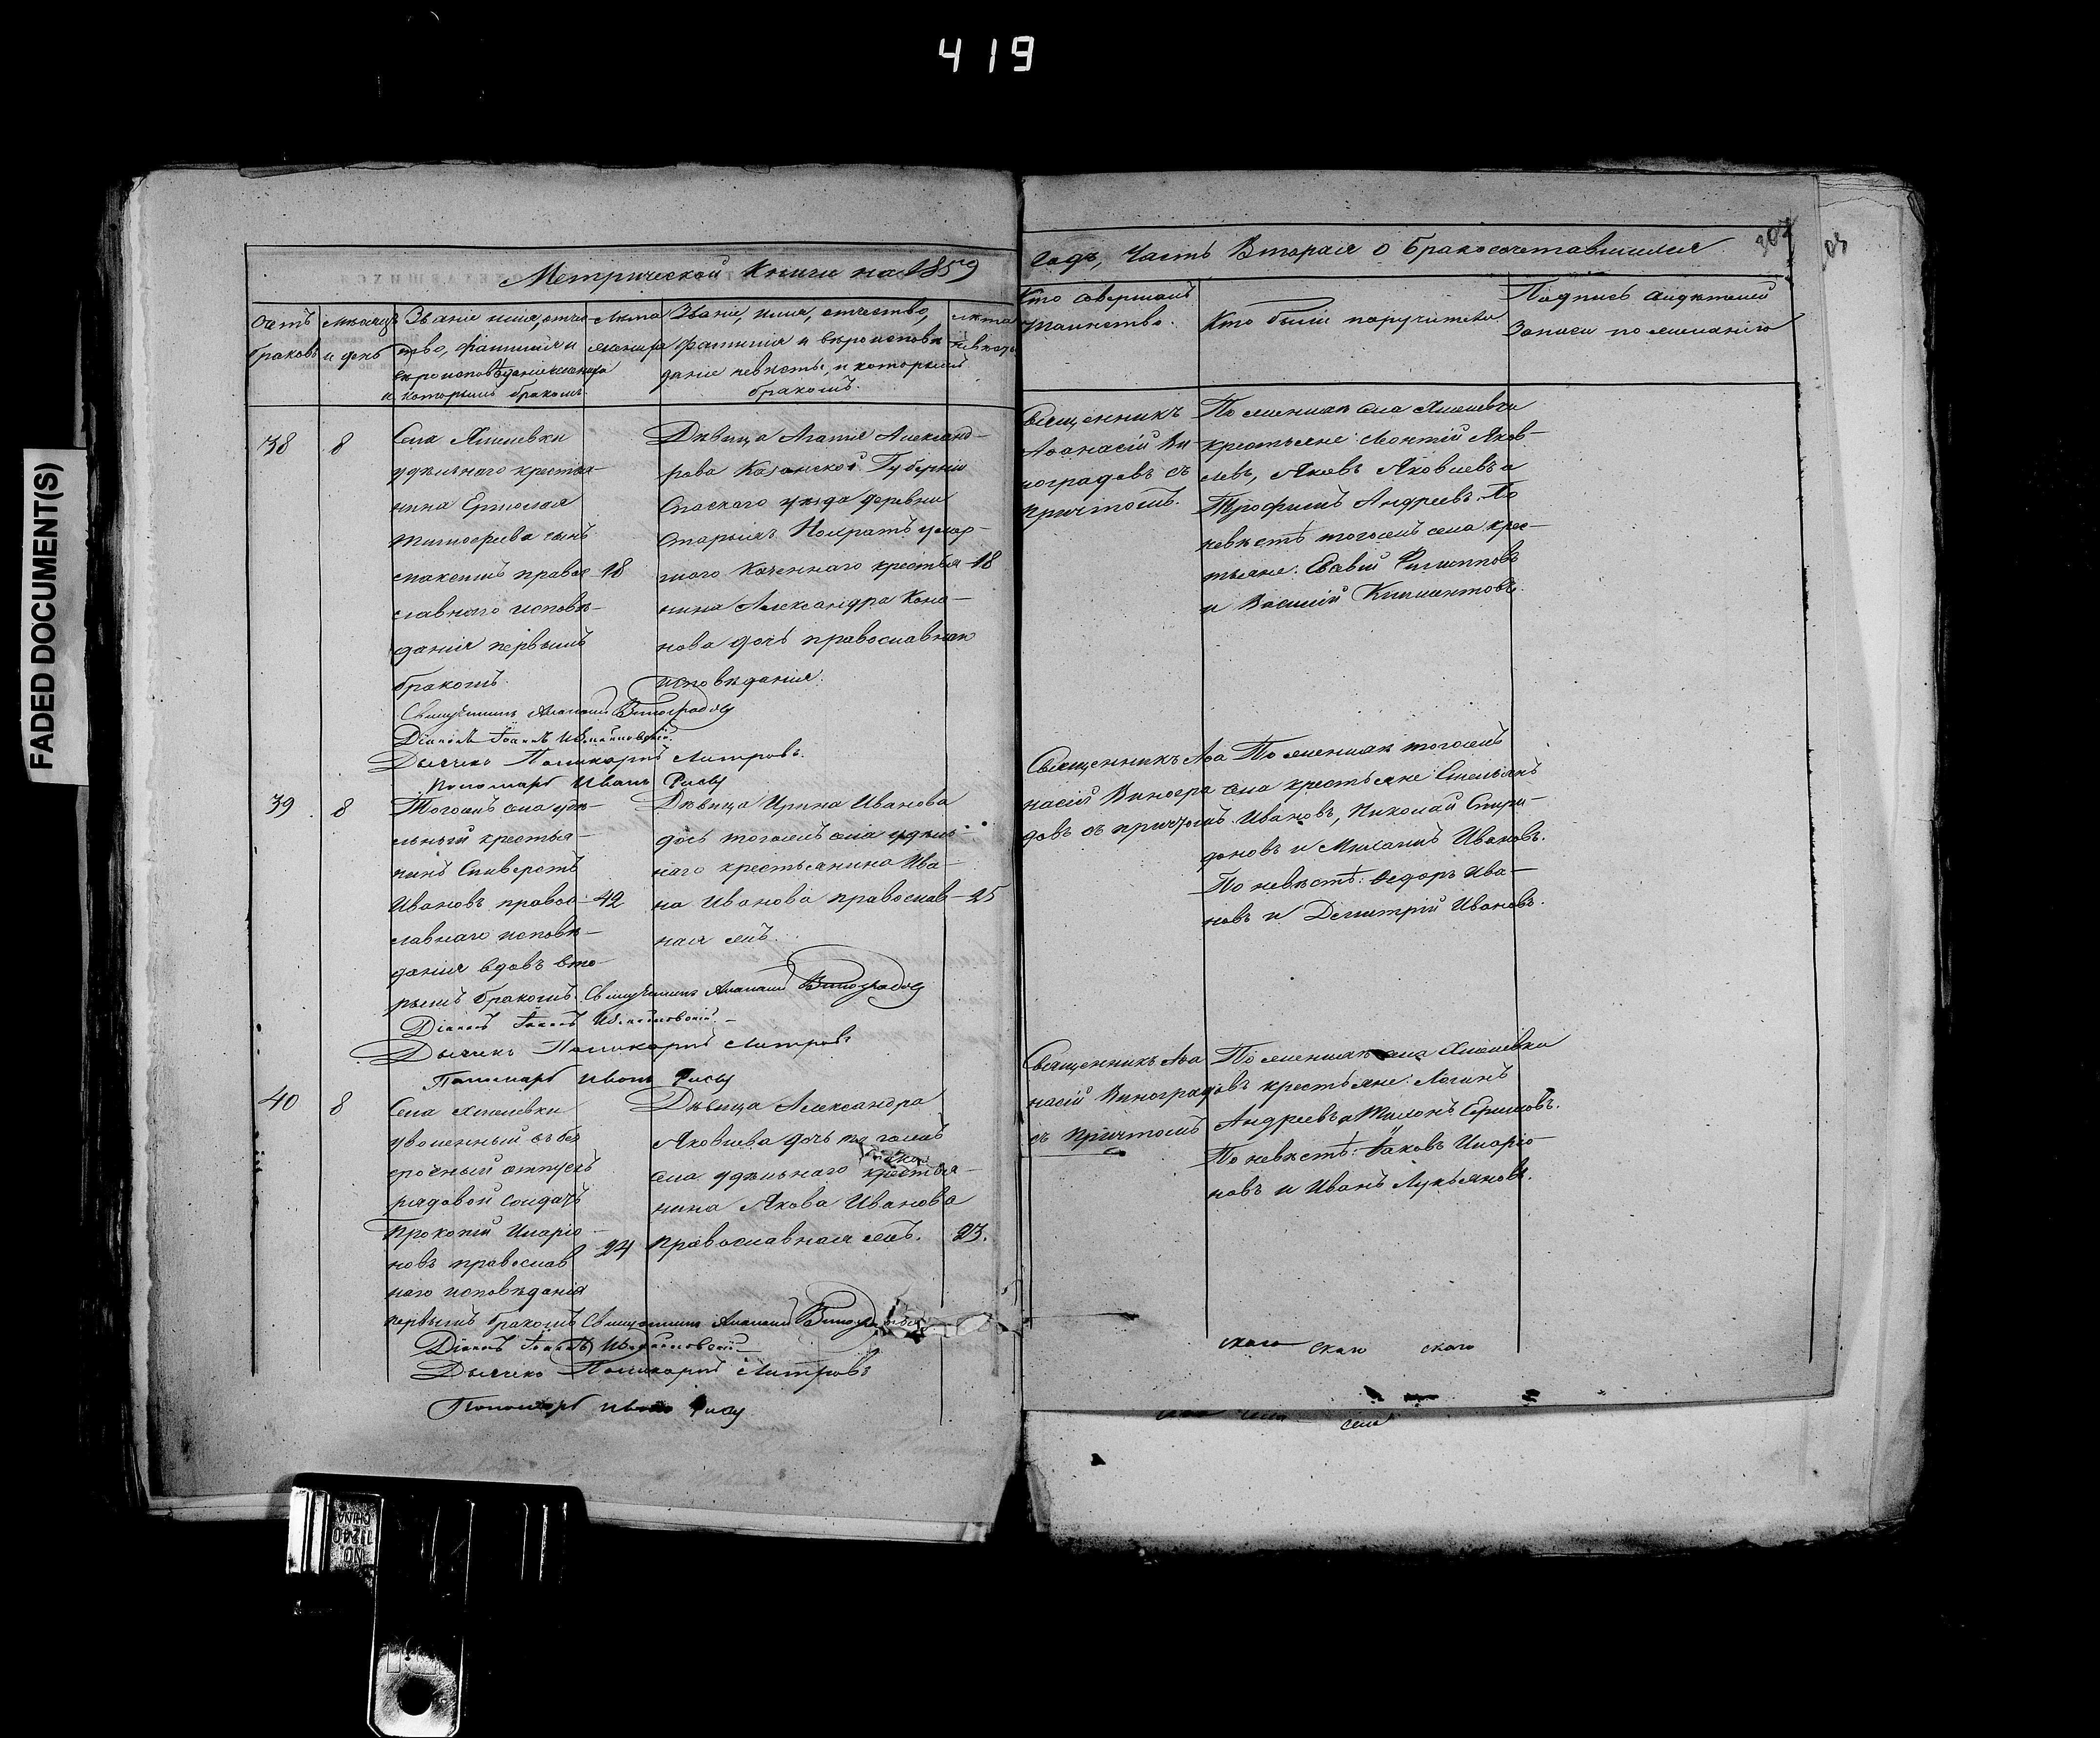 419
FADED DOCUMENT(S)
Метрической Книги на 1859
годъ, Часть Вторая о бракосочетавшихся
Счетъ браковъ
Мѣсяцъ и день
Званіе имя, отче-
ство, фамилія и
вѣроисповѣданіе жениха
и которымъ бракомъ.
Лѣта
жениха
Званіе, имя, отчество,
фамилія и вѣроисповѣ
даніе невѣсты, и которымъ
бракомъ.
лѣта
невѣсты
Кто совершалъ
таинство.
Кто были поручители
Подпись свидѣтелей
записи по желанію
38
8
Села
удѣльнаго крестья-
нина Ермолая
Тимофеева сынъ
православ
славнаго исповѣ-
данія первымъ
бракомъ.
18
Дѣвица Агатія Александ-
рова Казанской Губерніи
Спаского уѣзда деревни
Старыхъ
казеннаго крестья-
нина Александра Коно-
нова дочь православнаго
исповѣданія.
18
Священникъ
Афанасій Ви-
ноградовъ съ
причтомъ.
По женихѣ села
крестьяне: Леонтій Яков-
левъ, Яковъ Яковлевъ и
Трофимъ Андреевъ. По
невѣстѣ тогожъ села крес-
тьяне: Савлій Филипповъ
и Василій Климентовъ.
Священникъ Афанасій Виноградовъ
Діаконъ Іоаннъ
Дьячекъ Поликарпъ Митровъ.
Пономарь Иванъ
39
8
Тогожъ села удѣ-
льный крестья-
нинъ Силверстъ
Ивановъ право-
славнаго исповѣ-
данія вдовъ вто-
рымъ бракомъ.
42
Дѣвица Ирина Иванова
дочь тогожъ села удѣль-
наго крестьянина Ива-
на Иванова православ-
ная
25
Священникъ Афа
насій Виногра
довъ съ причтомъ.
По женихѣ тогожъ
села крестьяне Емельянъ
Ивановъ, Николай Спири-
доновъ и Михаилъ Ивановъ.
По невѣстѣ: Ѳедоръ Ива-
новъ и Дмитрій Ивановъ.
Священникъ Афанасій Виноградовъ
Діаконъ Іоаннъ
Дьячекъ Поликарпъ Митровъ
Пономарь Иванъ
40
8
Села
уволенный въ без
срочный отпускъ
рядовой солдатъ
Прокопій Иларіо-
новъ православ
наго исповѣданія
первымъ бракомъ
24
Дѣвица Александра
Яковлева дочь тогожъ
села удѣльнаго крестья-
нина Якова Иванова
православная
23.
Священникъ Афа
насій Виноградовъ
съ причтомъ
По женихѣ села
крестьяне: Логинъ
Андреевъ и Тихонъ Ермиловъ.
По невѣстѣ: Іаковъ Иларіо-
новъ и Иванъ Лукьяновъ.
Священникъ Афанасій
Діаконъ Іоаннъ
Дьячекъ Поликарпъ Митровъ
Пономарь Иванъ
скаго скаго скаго
села
NO. 1240
CHINA